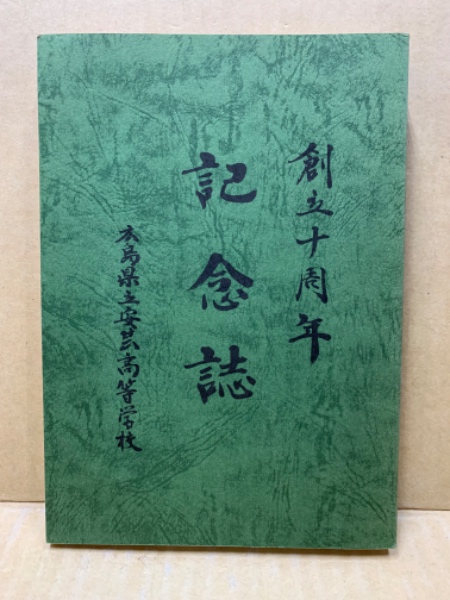 創立十周年
記念誌
広島県立安芸高等学校